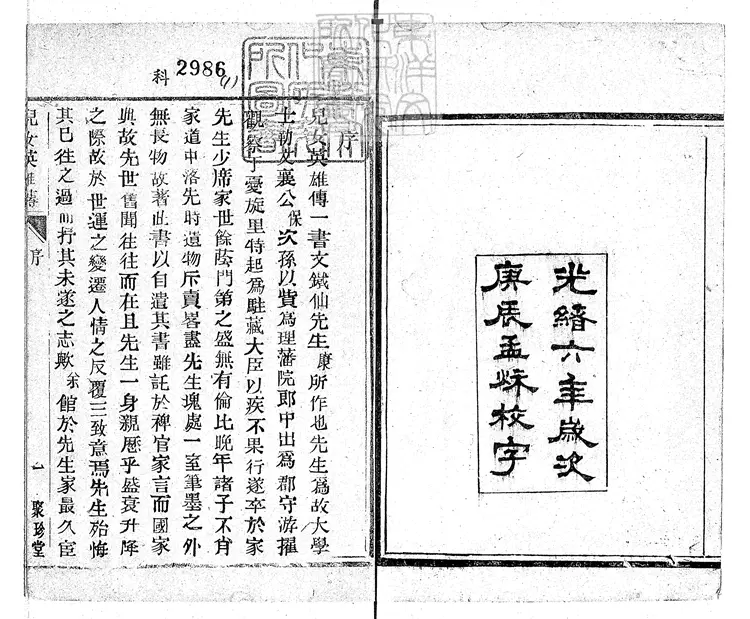 光緖六年歲次
庚辰孟秌校字
科
2986
(1)
序
兒女英雄傳一書文鐵仙先生康所作也先生爲故大學
士勒文襄公保次孫以貲爲理藩院郎中出爲郡守洊擢
觀察丁憂旋里特起爲駐藏大臣以疾不果行遂卒於家
先生少席家世餘蔭門第之盛無有倫比晚年諸子不肖
家道中洛先時遺物斥賣畧盡先生塊處一室筆墨之外
無長物故著此書以自遣其書雖託於稗官家言而國家
典故先世舊聞往往而在且先生一身親歷乎盛衰升降
之際故於世運之變遷人情之反覆三致意焉先生殆悔
其已往之過而抒其未遂之志歟余館於先生家最久宦
兒女英雄傳
序
一
聚珍堂